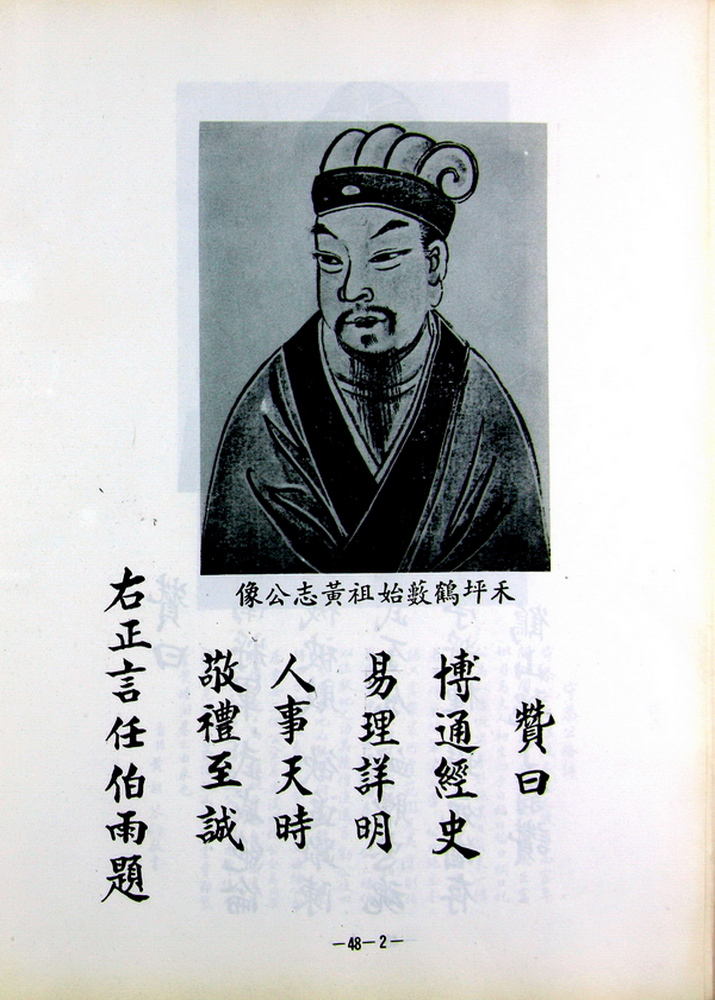 禾坪鶴藪始祖黃志公像
贊曰
博通經史
易理詳明
人事天時
敬禮至誠
右正言任伯雨題
—48—2—